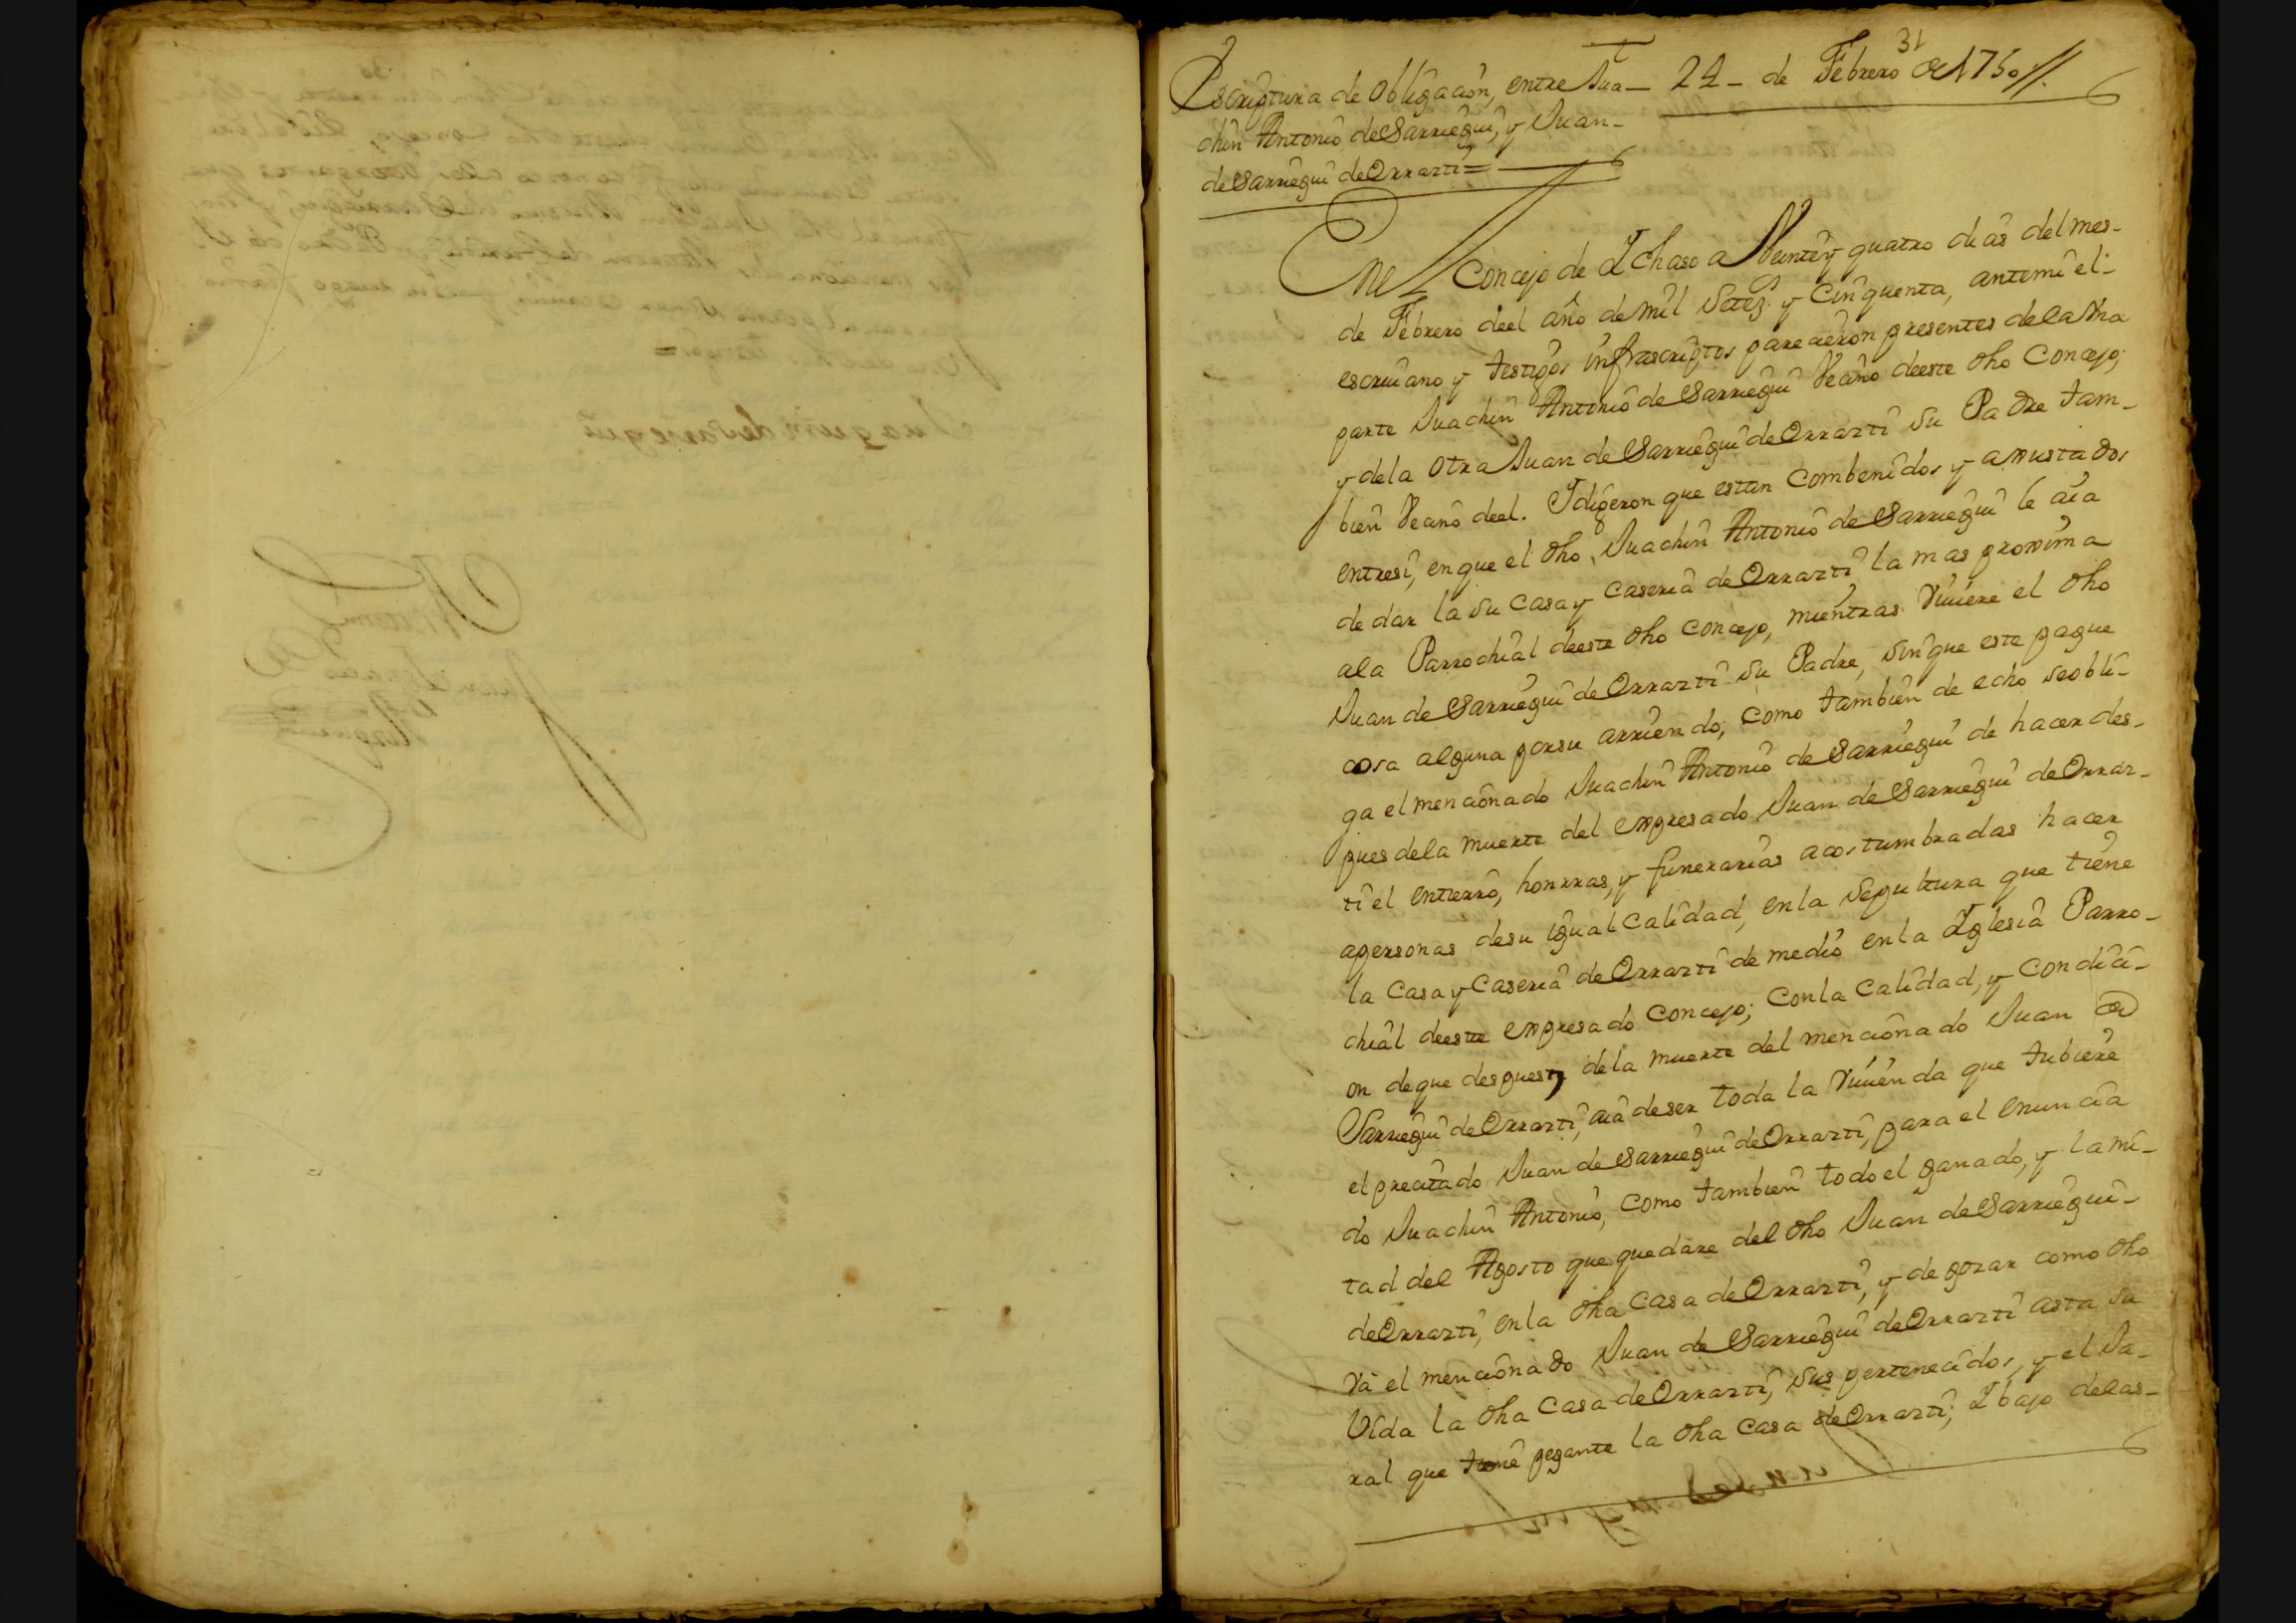 31
Escriptura de obligaaòn, entre Jua- 24- de Febrero de 1750//.
chin Antonio de Sarriegui, y Juan-
de Sarriegui de Orrazti=
En el Concejo de Ichaso a Veinte y quatro dias del mes-
de Febrero deel año de mil Setez.s y Cinquenta, antemi el-
escriuano y testigos infrascriptos parecieron presentes de la Vna
parte Juachin Antonio de Sarriegui Vecino deeste dho Concejo;
y dela otra Juan de Sarriegui de Orrazti su Padre tam-
bien Vecino deel. I digeron que estan Combenidos y axustados
entresi, en que el dho, Juachin Antonio de Sarriegui le aia
de dar la su casa y caseria de Orrazti la mas proxima
ala Parrochial deeste dho concejo, mientras Viuiere el dho
Juan de Sarriegui de Orrazti su Padre, sin que este pague
cosa alguna porsu arriendo; como tambien de echo seobli-
ga el mencionado Juachin Antonio de Sarriegui de hacer des-
pues dela muerte del expresado Juan de Sarriegui de Orraz-
ti el entierro, honrras, y funerarias acostumbradas hacer
apersonas desu igual calidad, en la sepultura que tiene
la Casa y Caseria de Orrazti de medio en la Iglesia Parro-
chial deeste expresado Concejo; Conla Calidad, y Condici-
on de que despues dela muerte del mencionado Juan de
Sarriegui de Orrazti, aia deser toda la Viuienda que tubiere
el precitado Juan de Sarriegui de Orrazti, para el enuncia
do Juachin Antonio, como tambien todo el ganado, y la mi-
tad del Agosto que quedare del dho Juan de Sarriegui-
de Orrazti, en la dha casa de Orrazti, y de gozar como dho
Vá el mencionado Juan de Sarriegui de Orrazti asta su
Vida la dha Casa de Orrazti, sus pertenecidos, y el Ja-
ral que tiene pegante la dha Casa de Orrazti; I bajo delas-